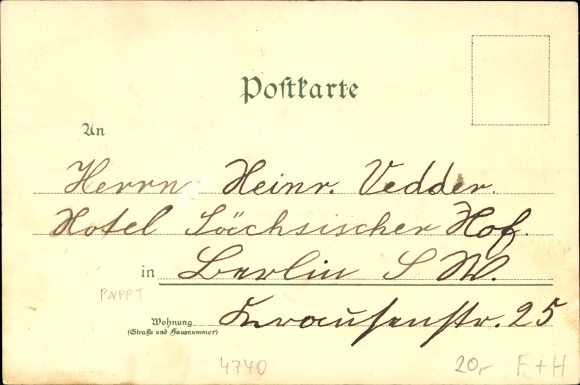 Postkarte
An
Herrn Heinr. Vedder.
Hotel Sächsischer Hof.
in Berlin S W.
Wohnung Krausenstr. 25
(Straße und Hausnummer)
4740
20,- F+H